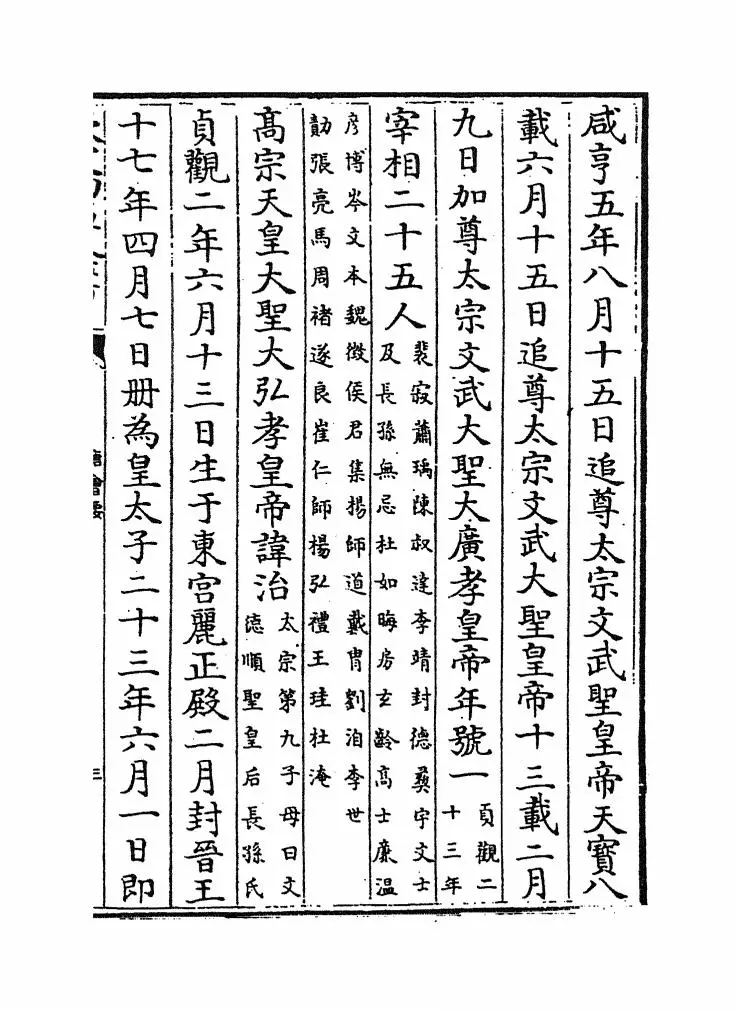 咸亨五年八月十五日追尊太宗文武聖皇帝天寶八
載六月十五日追尊太宗文武大聖皇帝十三載二月
九日加尊太宗文武大聖大廣孝皇帝年號一貞觀二
十三年
宰相二十五人裴寂蕭瑀陳叔達李靖封德彞宇文士
及長孫無忌杜如晦房玄齡高士廉溫
彦博岑文本魏徵侯君集楊師道戴胄劉洎李世
勣張亮馬周褚遂良崔仁師楊弘禮王珪杜淹
髙宗天皇大聖大弘孝皇帝諱治太宗第九子母曰文
德順聖皇后長孫氏
貞觀二年六月十三日生于東宮麗正殿二月封晉王
十七年四月七日冊為皇太子二十三年六月一日即
唐會要
三